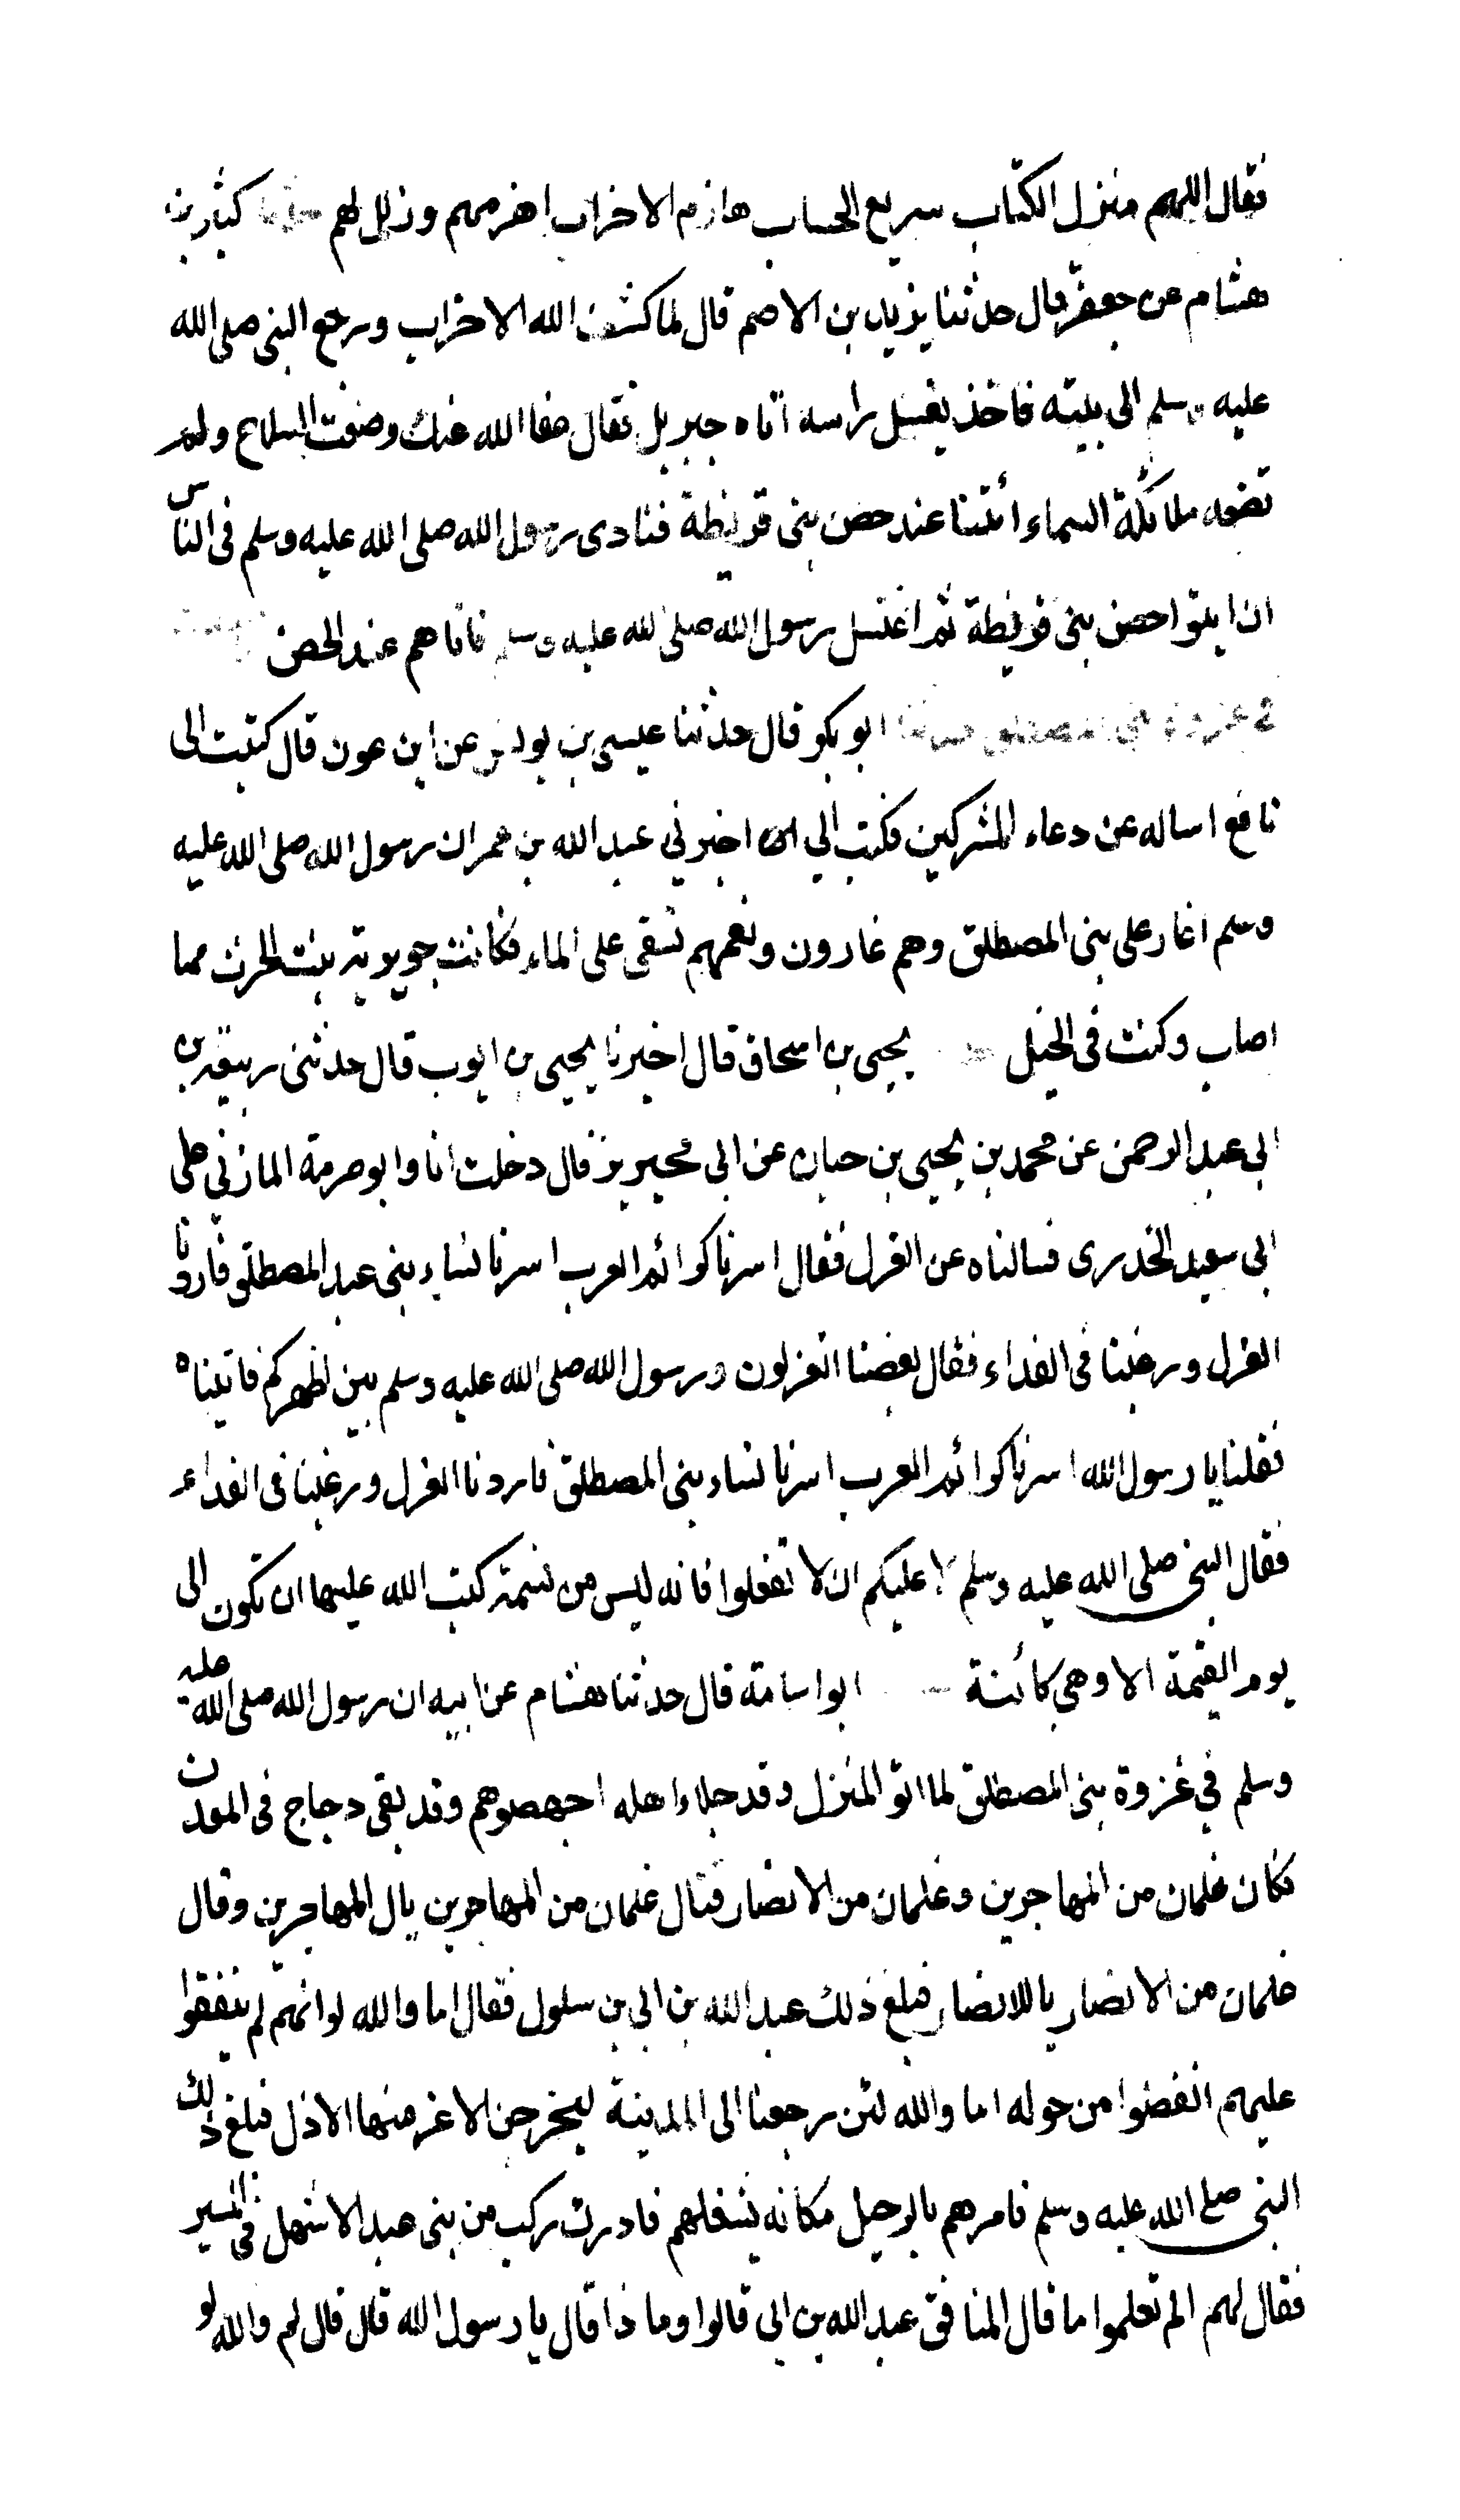 فقال اللهم منزل الكتاب سريع الحساب هازم الاحزاب اهزمهم وزلزلهم حدثنا كثير بن
هشام عن جعفر قال حدثنا يزيد بن الاصم قال لما كشف الله الاحزاب ورجع النبي صلى الله
عليه وسلم الى بيته فاخذ يغسل راسه اتاه جبريل فقال عفا الله عنك وضعت السلاح ولم
تضعه ملائكة السماء ائتنا عند حصن بني قريظة فنادى رسول الله صلى الله عليه وسلم في الناس
ان ايتوا حصن بني قريظة ثم اغتسل رسول الله صلى الله عليه وسلم فاتاهم عند الحصن
في غزوة بني المصطلق حدثنا ابو بكر قال حدثنا عيسى بن يونس عن ابن عون قال كتبت الى
نافع اساله عن دعاء المشركين فكتب الي اخبرني عبد الله بن عمر ان رسول الله صلى الله عليه
وسلم اغار على بني المصطلق وهم غارون ونعمهم تسقى على الماء فكانت جويرية بنت الحرث مما
اصاب وكنت في الخيل يحيى بن اسحاق قال اخبرنا يحيى بن ايوب قال حدثني ربيعة بن
ابي عبد الرحمن عن محمد بن يحيى بن حبان عن ابي محيريز قال دخلت انا وابو صرمة المازني على
ابي سعيد الخدري فسالناه عن العزل فقال اسرنا كرائم العرب اسرنا نساء بني عبد المصطلق فاردنا
العزل ورغبنا في الفداء فقال بعضنا اتعزلون ورسول الله صلى الله عليه وسلم بين اظهركم فاتيناه
فقلنا يا رسول الله اسرنا كرائم العرب اسرنا نساء بني المصطلق فاردنا العزل ورغبنا في الفداء
فقال النبي صلى الله عليه وسلم لا عليكم ان لا تفعلوا فانه ليس من نسمة كتب الله عليها ان تكون الى
يوم القيمة الا وهي كائنة ابو اسامة قال حدثنا هشام عن ابيه ان رسول الله صلى الله عليه
وسلم في غزوة بني المصطلق لما اتو المنزل وقد جلاء اهله اجهضوهم وقد بقي دجاج في المعدن
فكان غلمان من المهاجرين وغلمان من الانصار فقال غلمان من المهاجرين يال المهاجرين وقال
غلمان من الانصار يا للانصار فبلغ ذلك عبد الله بن ابي بن سلول فقال اما والله لو انهم لم ينفقوا
عليهم انفضوا من حوله اما والله لئن رجعنا الى المدينة ليخرجن الاعز منها الاذل فبلغ ذلك
النبي صلى الله عليه وسلم فامرهم بالرحيل مكانه يشغلهم فادرك ركب من بني عبد الاشهل في المسير
فقال لهم الم تعلموا ما قال المنافق عبد الله بن ابي قالوا وما ذا قال يا رسول الله قال قال لم والله لو